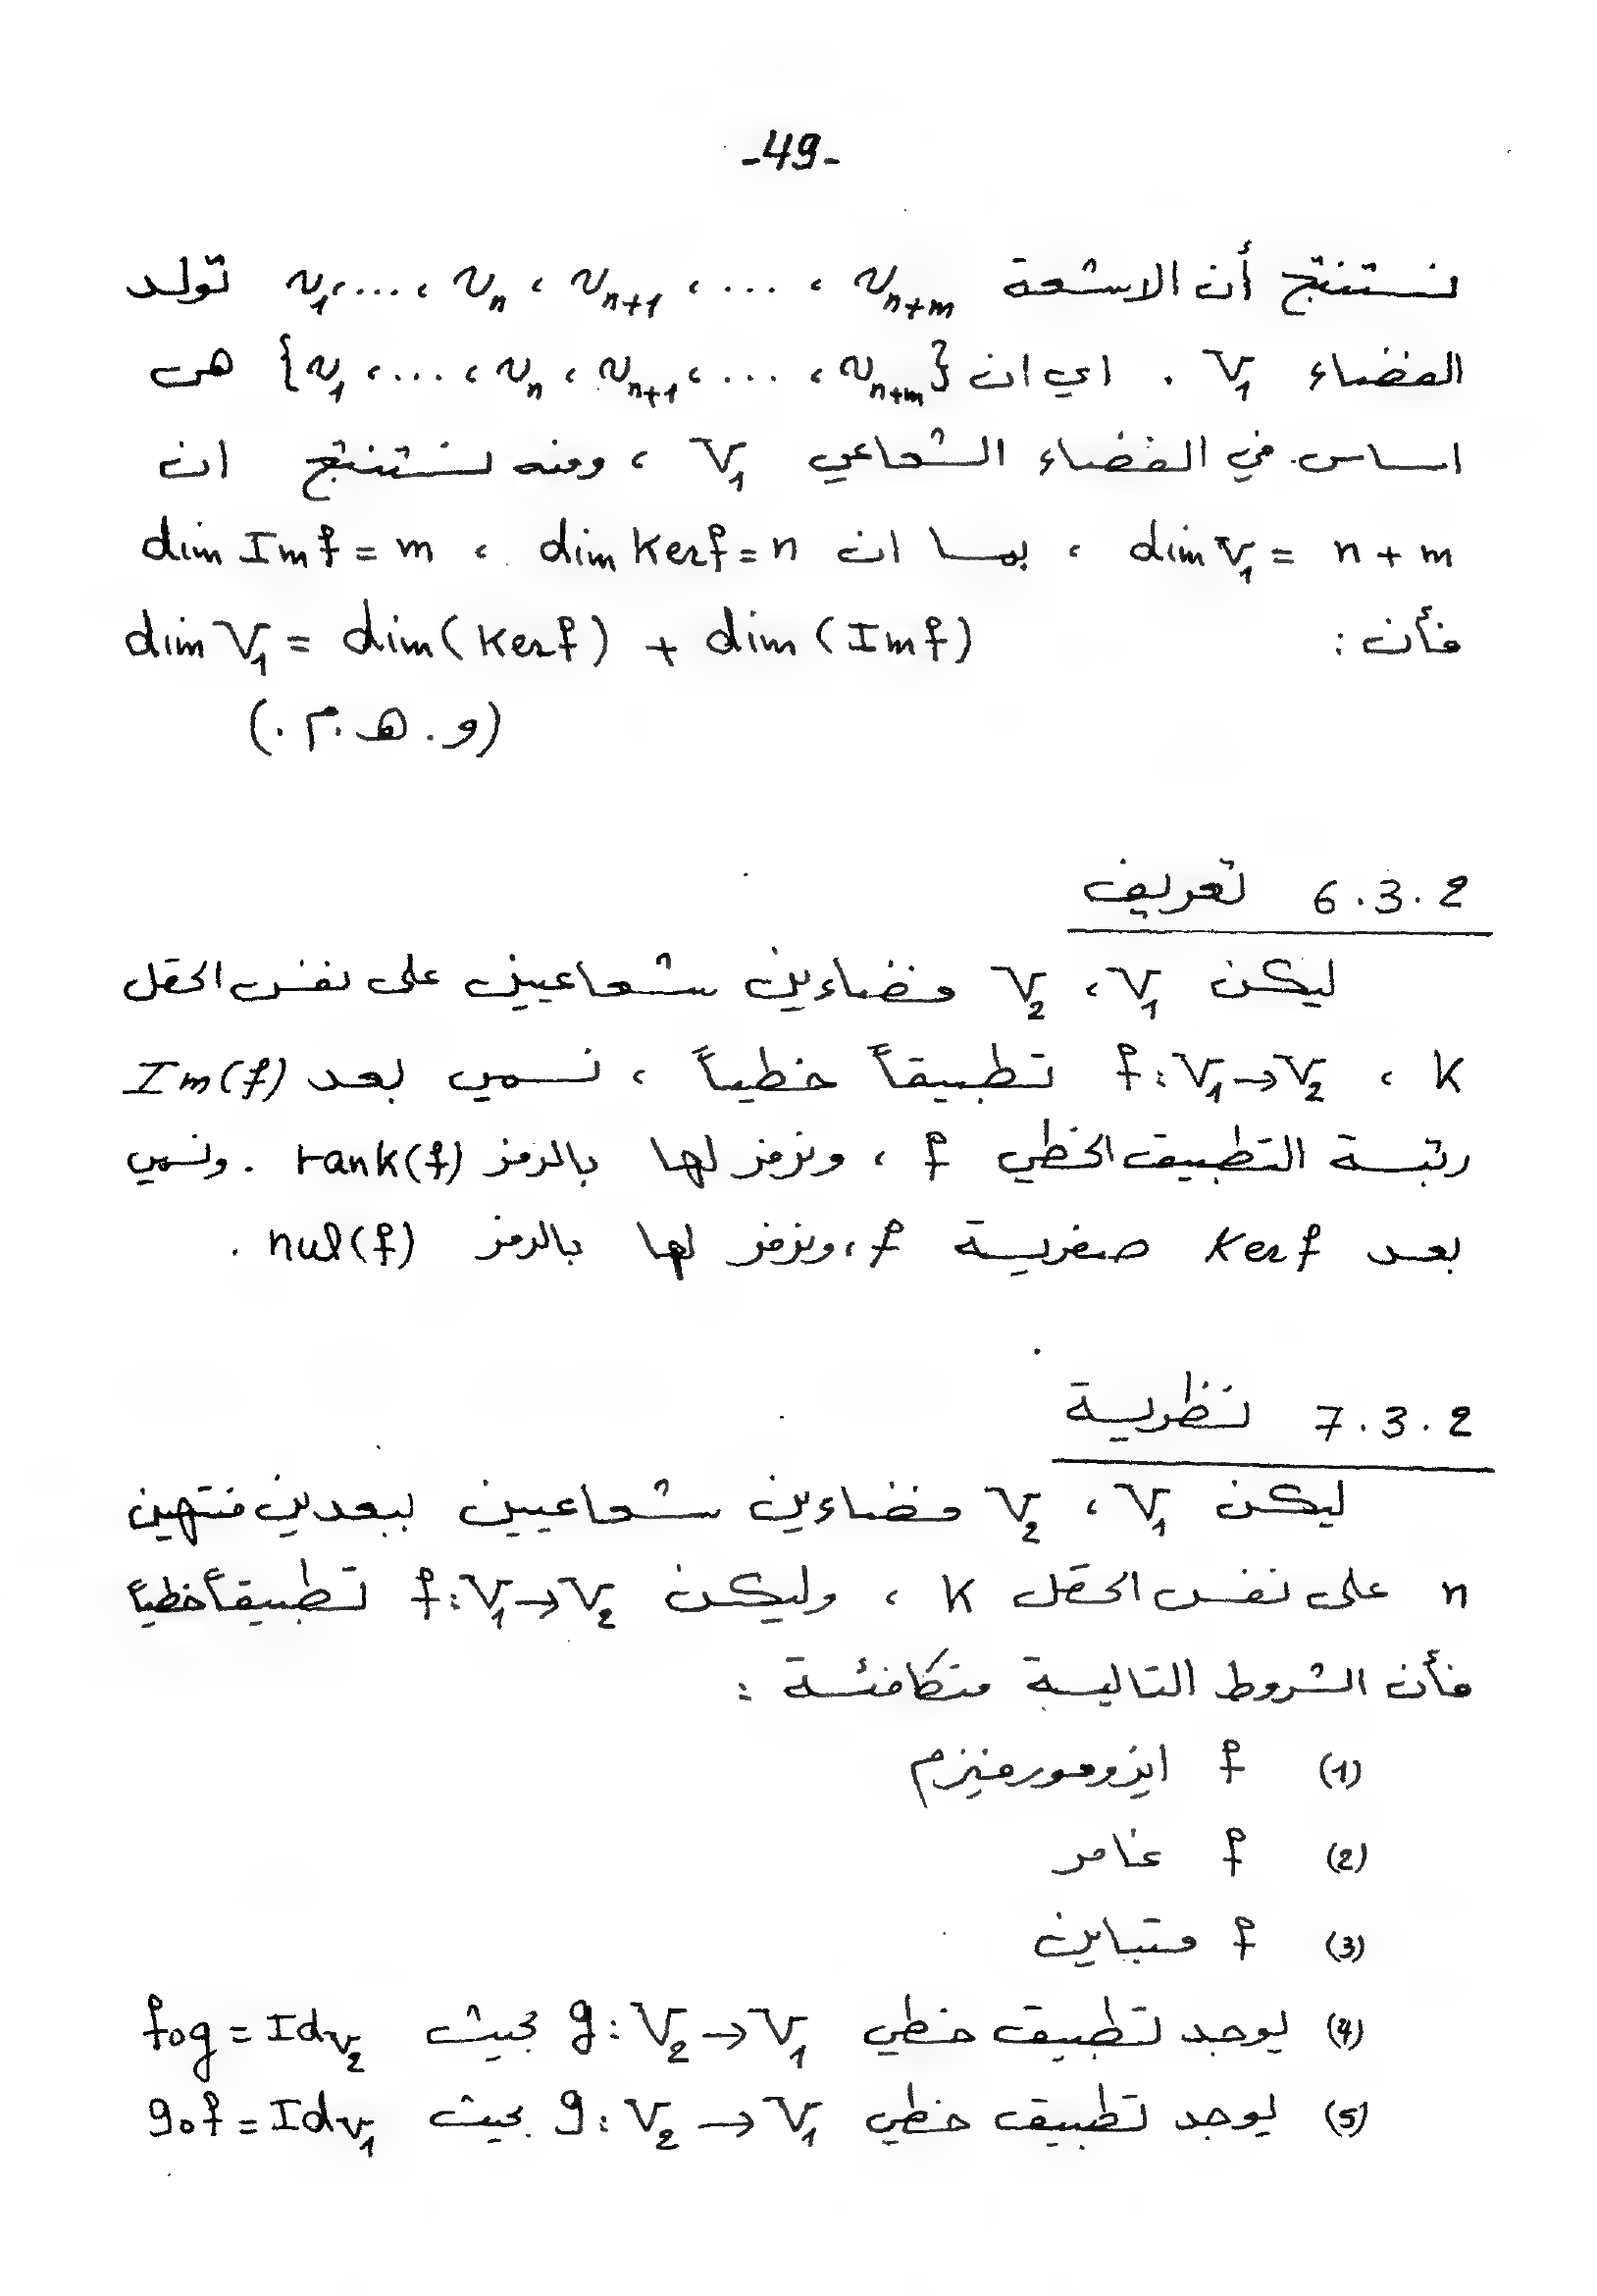 -49-
نستنتج أن الاشعة v₁، ...، vₙ، vₙ₊₁، ...، vₙ₊ₘ تولد
الفضاء V₁ . اي ان {v₁، ...، vₙ، vₙ₊₁، ...، vₙ₊ₘ} هي
اساس في الفضاء الشعاعي V₁ ، ومنه نستنتج ان
dim V₁ = n + m ، بما ان dim Kerf = n ، dim Imf = m
فأن : dim V₁ = dim(Kerf) + dim(Imf)
(و . هـ . م .)
6.3.2 تعريف
ليكن V₁ ، V₂ فضاءين شعاعيين على نفس الحقل
K ، f: V₁→V₂ تطبيقاً خطياً ، نسمي بعد Im(f)
رتبة التطبيق الخطي f ، ونرمز لها بالرمز rank(f) . ونسمي
بعد Kerf صفرية f ، ونرمز لها بالرمز nul(f) .
7.3.2 نظرية
ليكن V₁ ، V₂ فضاءين شعاعيين ببعدين منتهين
n على نفس الحقل K ، وليكن f: V₁→V₂ تطبيقاً خطياً
فأن الشروط التالية متكافئة :
(1) f ايزومورفيزم
(2) f غامر
(3) f متباين
(4) يوجد تطبيق خطي g: V₂→V₁ بحيث fog = Id_V₂
(5) يوجد تطبيق خطي g: V₂→V₁ بحيث gof = Id_V₁